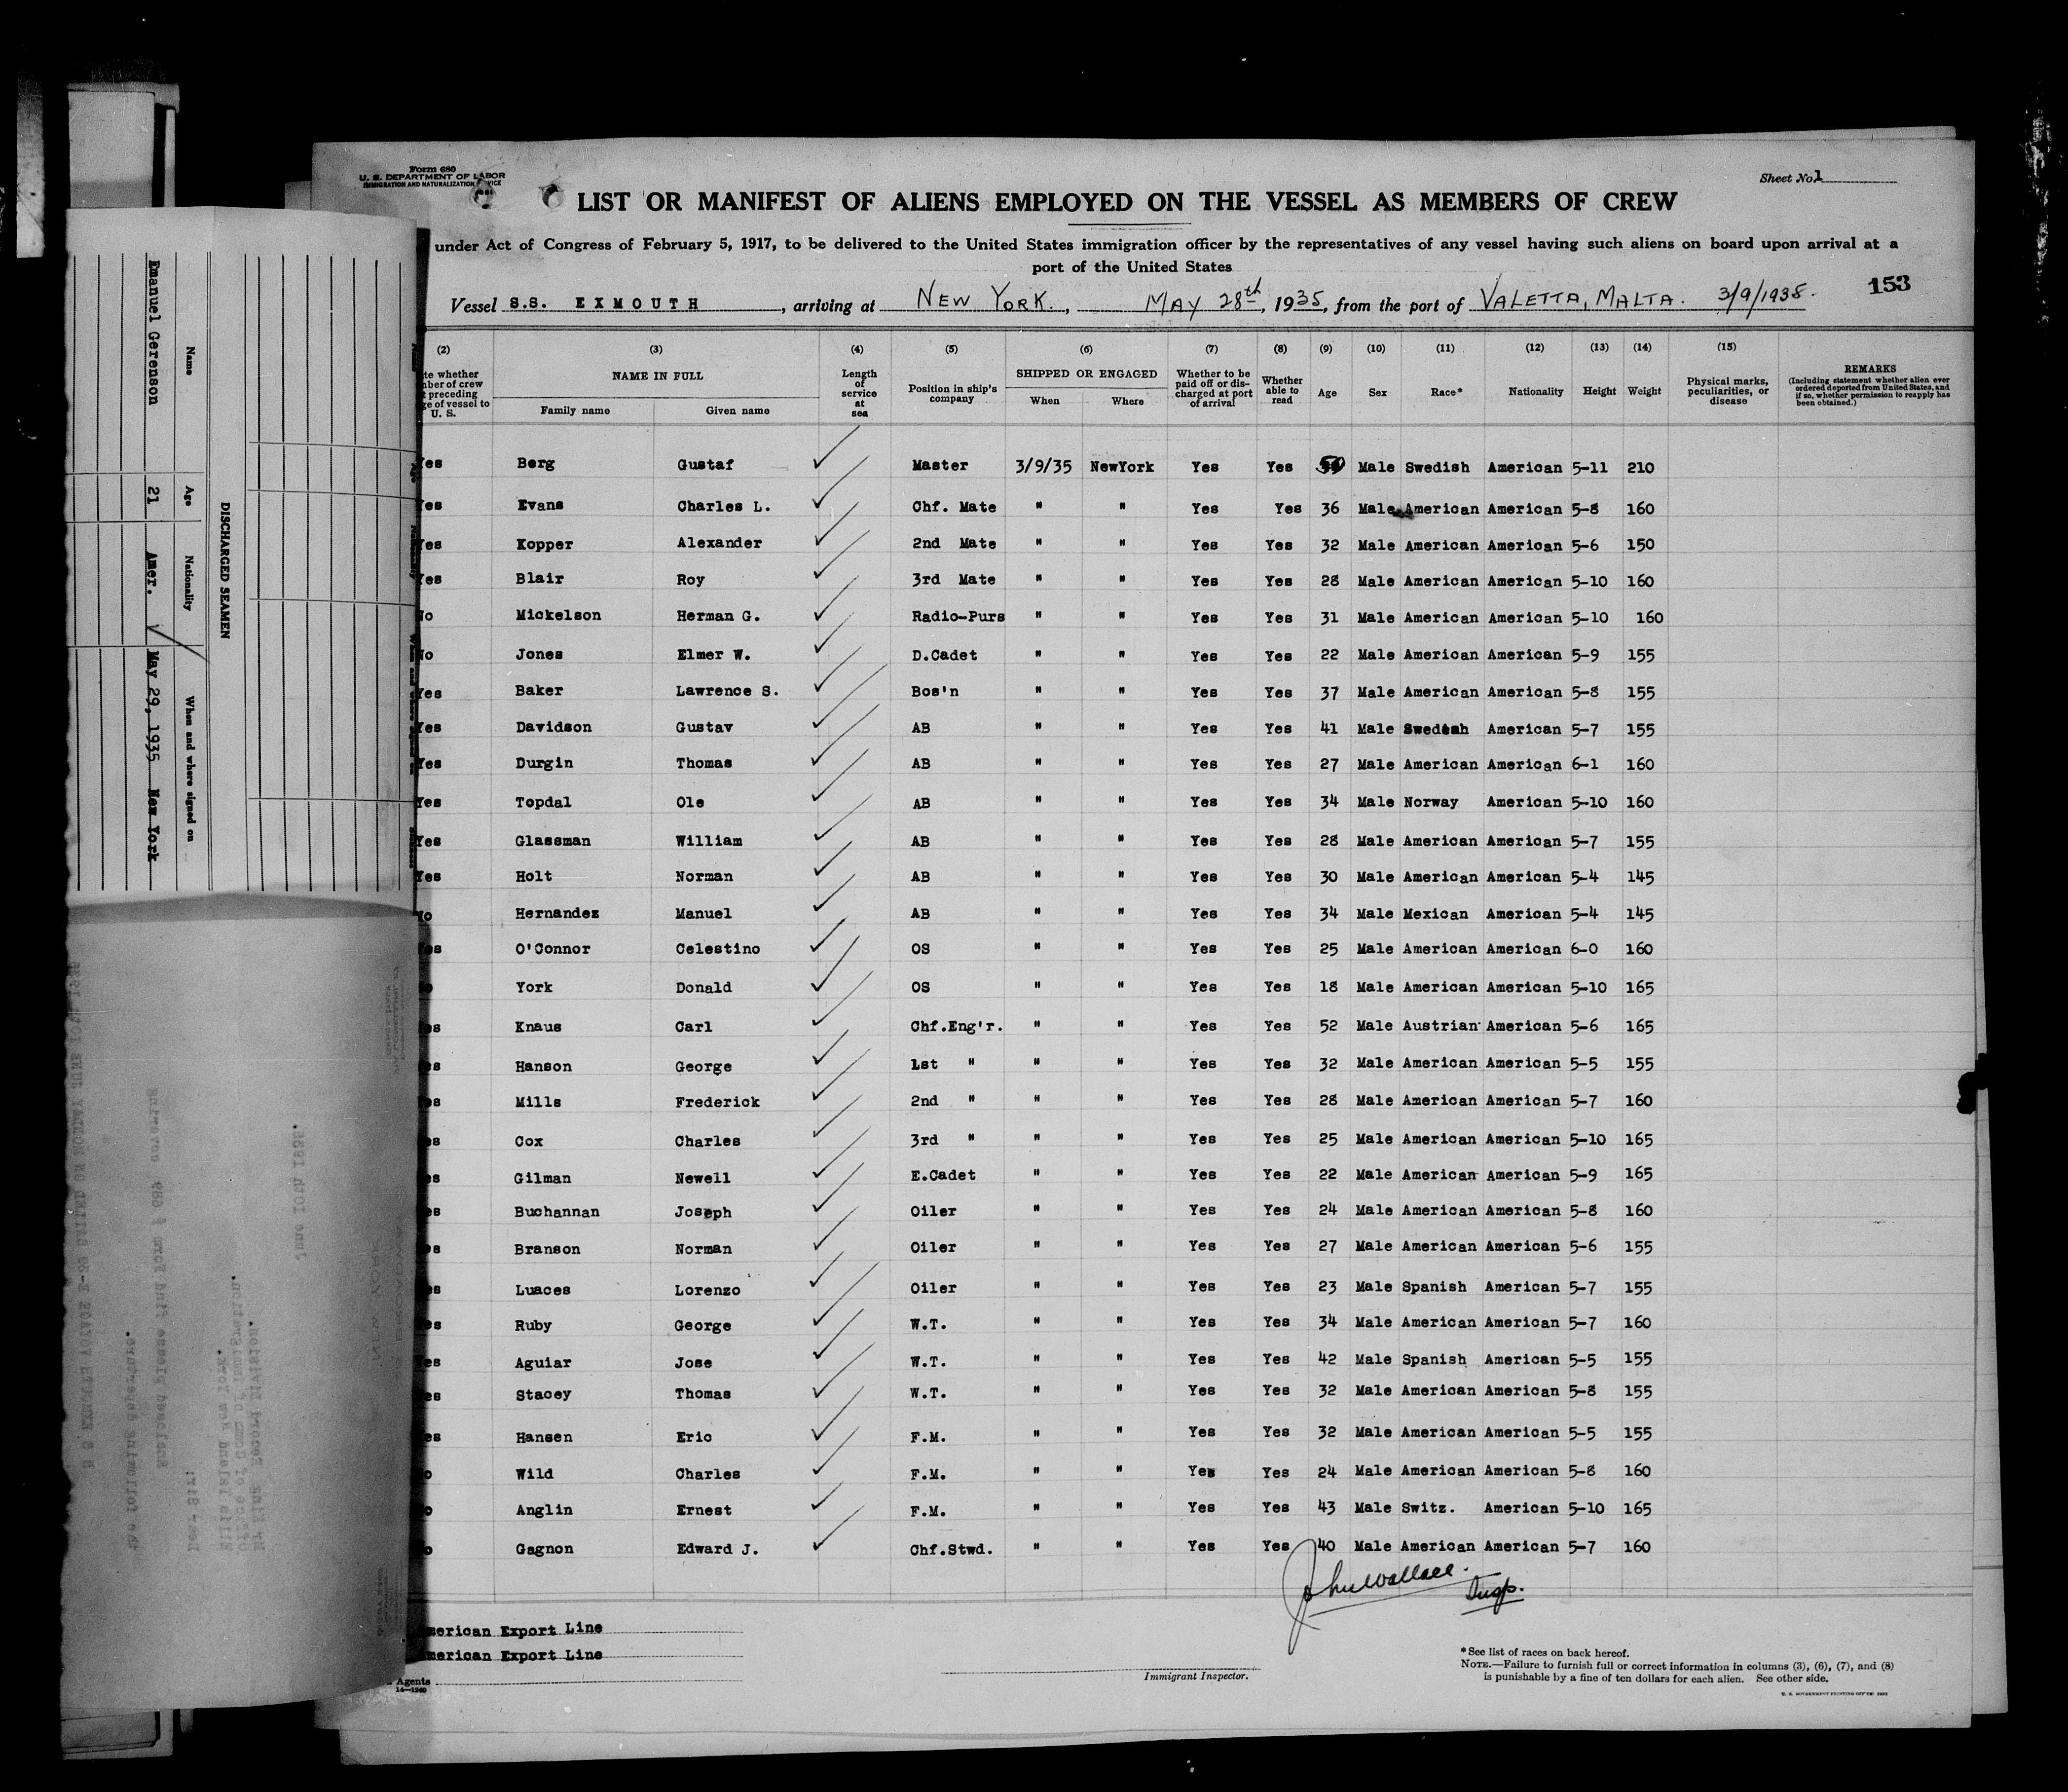 Form 680
U. S. DEPARTMENT OF LABOR
IMMIGRATION AND NATURALIZATION
Sheet No. 1
LIST OR MANIFEST OF ALIENS EMPLOYED ON THE VESSEL AS MEMBERS OF CREW
under Act of Congress of February 5, 1917, to be delivered to the United States immigration officer by the representatives of any vessel having such aliens on board upon arrival at a
port of the United States
153
Vessel S.S. EXMOUTH, arriving at NEW YORK., MAY 28th, 1935, from the port of VALETTA, MALTA. 3/9/1935.
(2) (3) (4) (5) (6) (7) (8) (9) (10) (11) (12) (13) (14) (15)
whether
of crew
preceding
of vessel to
U. S.
NAME IN FULL
Family name Given name
Length
of
service
at
sea
Position in ship's
company
SHIPPED OR ENGAGED
When Where
Whether to be
paid off or dis-
charged at port
of arrival
Whether
able to
read
Age Sex Race* Nationality Height Weight
Physical marks,
peculiarities, or
disease
REMARKS
(Including statement whether alien ever
ordered deported from United States, and
if so, whether permission to reapply has
been obtained.)
Yes Berg Gustaf Master 3/9/35 NewYork Yes Yes Male Swedish American 5-11 210
Yes Evans Charles L. Chf. Mate " " Yes Yes 36 Male American American 5-8 160
Yes Kopper Alexander 2nd Mate " " Yes Yes 32 Male American American 5-6 150
Yes Blair Roy 3rd Mate " " Yes Yes 28 Male American American 5-10 160
No Mickelson Herman G. Radio-Purs " " Yes Yes 31 Male American American 5-10 160
No Jones Elmer W. D.Cadet " " Yes Yes 22 Male American American 5-9 155
Yes Baker Lawrence S. Bos'n " " Yes Yes 37 Male American American 5-8 155
Yes Davidson Gustav AB " " Yes Yes 41 Male Swedish American 5-7 155
Yes Durgin Thomas AB " " Yes Yes 27 Male American American 6-1 160
Yes Topdal Ole AB " " Yes Yes 34 Male Norway American 5-10 160
Yes Glassman William AB " " Yes Yes 28 Male American American 5-7 155
Yes Holt Norman AB " " Yes Yes 30 Male American American 5-4 145
No Hernandez Manuel AB " " Yes Yes 34 Male Mexican American 5-4 145
Yes O'Connor Celestino OS " " Yes Yes 25 Male American American 6-0 160
No York Donald OS " " Yes Yes 18 Male American American 5-10 165
Yes Knaus Carl Chf.Eng'r. " " Yes Yes 52 Male Austrian American 5-6 165
Yes Hanson George 1st " " " Yes Yes 32 Male American American 5-5 155
Yes Mills Frederick 2nd " " " Yes Yes 28 Male American American 5-7 160
Yes Cox Charles 3rd " " " Yes Yes 25 Male American American 5-10 165
Yes Gilman Newell E.Cadet " " Yes Yes 22 Male American American 5-9 165
Yes Buchannan Joseph Oiler " " Yes Yes 24 Male American American 5-8 160
Yes Branson Norman Oiler " " Yes Yes 27 Male American American 5-6 155
Yes Luaces Lorenzo Oiler " " Yes Yes 23 Male Spanish American 5-7 155
Yes Ruby George W.T. " " Yes Yes 34 Male American American 5-7 160
Yes Aguiar Jose W.T. " " Yes Yes 42 Male Spanish American 5-5 155
Yes Stacey Thomas W.T. " " Yes Yes 32 Male American American 5-8 155
Yes Hansen Eric F.M. " " Yes Yes 32 Male American American 5-5 155
No Wild Charles F.M. " " Yes Yes 24 Male American American 5-8 160
No Anglin Ernest F.M. " " Yes Yes 43 Male Switz. American 5-10 165
No Gagnon Edward J. Chf.Stwd. " " Yes Yes 40 Male American American 5-7 160
John Wallace. Insp.
American Export Line
American Export Line
Agents
14—1240
Immigrant Inspector.
*See list of races on back hereof.
NOTE.—Failure to furnish full or correct information in columns (3), (6), (7), and (8)
is punishable by a fine of ten dollars for each alien. See other side.
DISCHARGED SEAMEN
Name Age Nationality When and where signed on
Emanuel Gerenson 21 Amer. May 29, 1935 New York
June 10th 1935.
Dear Sir:
Enclosed please find Form # 689 covering
the following departure.